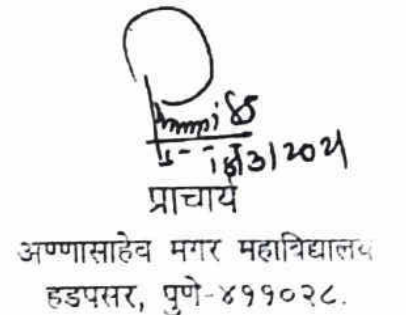 प्राचार्य
अण्णासाहेव मगर महाविद्यालय
हडपसर, पुणे-४११०२८.